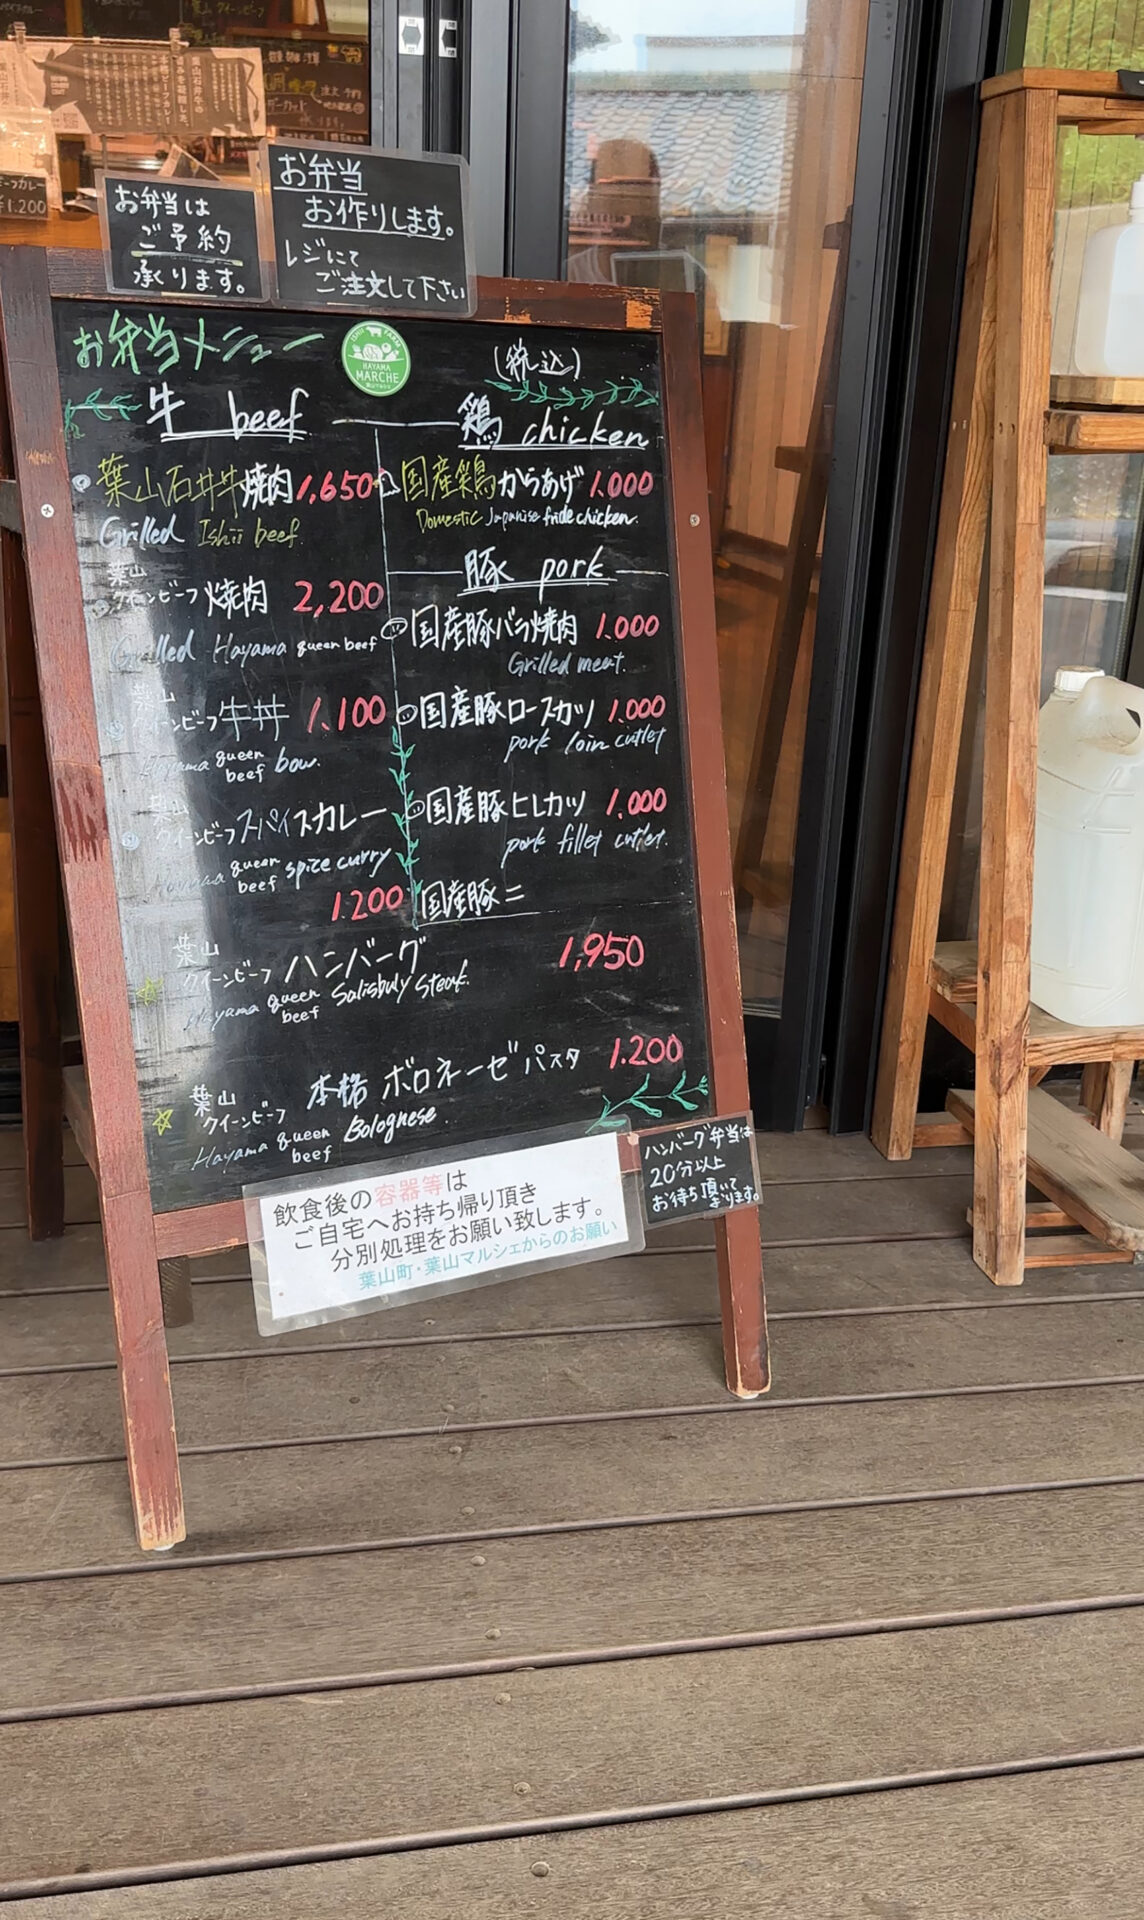 お弁当は
ご予約
承ります。
お弁当
お作りします。
レジにて
ご注文して下さい
¥1.200
お弁当メニュー
ISHII FARM
HAYAMA
MARCHE
葉山マルシェ
(税込)
牛 beef
葉山石井牛焼肉 1,650
Grilled Ishii beef.
葉山
クイーンビーフ 焼肉 2,200
Grilled Hayama queen beef
葉山
クイーンビーフ 牛丼 1.100
Hayama queen beef bow.
葉山
クイーンビーフ スパイスカレー
Hayama queen beef spice curry
1.200
鶏 chicken
国産鶏からあげ 1.000
Domestic Japanise fride chicken.
豚 pork
国産豚バラ焼肉 1.000
Grilled meat.
国産豚ロースカツ 1.000
pork loin cutlet
国産豚ヒレカツ 1.000
pork fillet cutlet.
国産豚ニ
葉山
クイーンビーフ ハンバーグ 1,950
Hayama queen beef Salisbuly Steak.
葉山
クイーンビーフ 本格 ボロネーゼパスタ 1.200
Hayama queen beef Bolognese.
飲食後の容器等は
ご自宅へお持ち帰り頂き
分別処理をお願い致します。
葉山町・葉山マルシェからのお願い
ハンバーグ弁当は
20分以上
お待ち頂いて
まります。